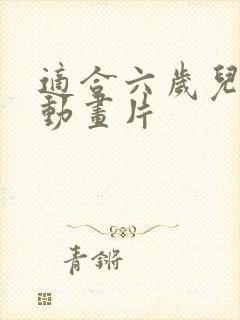 適合六歲兒
動畫片
青鏘